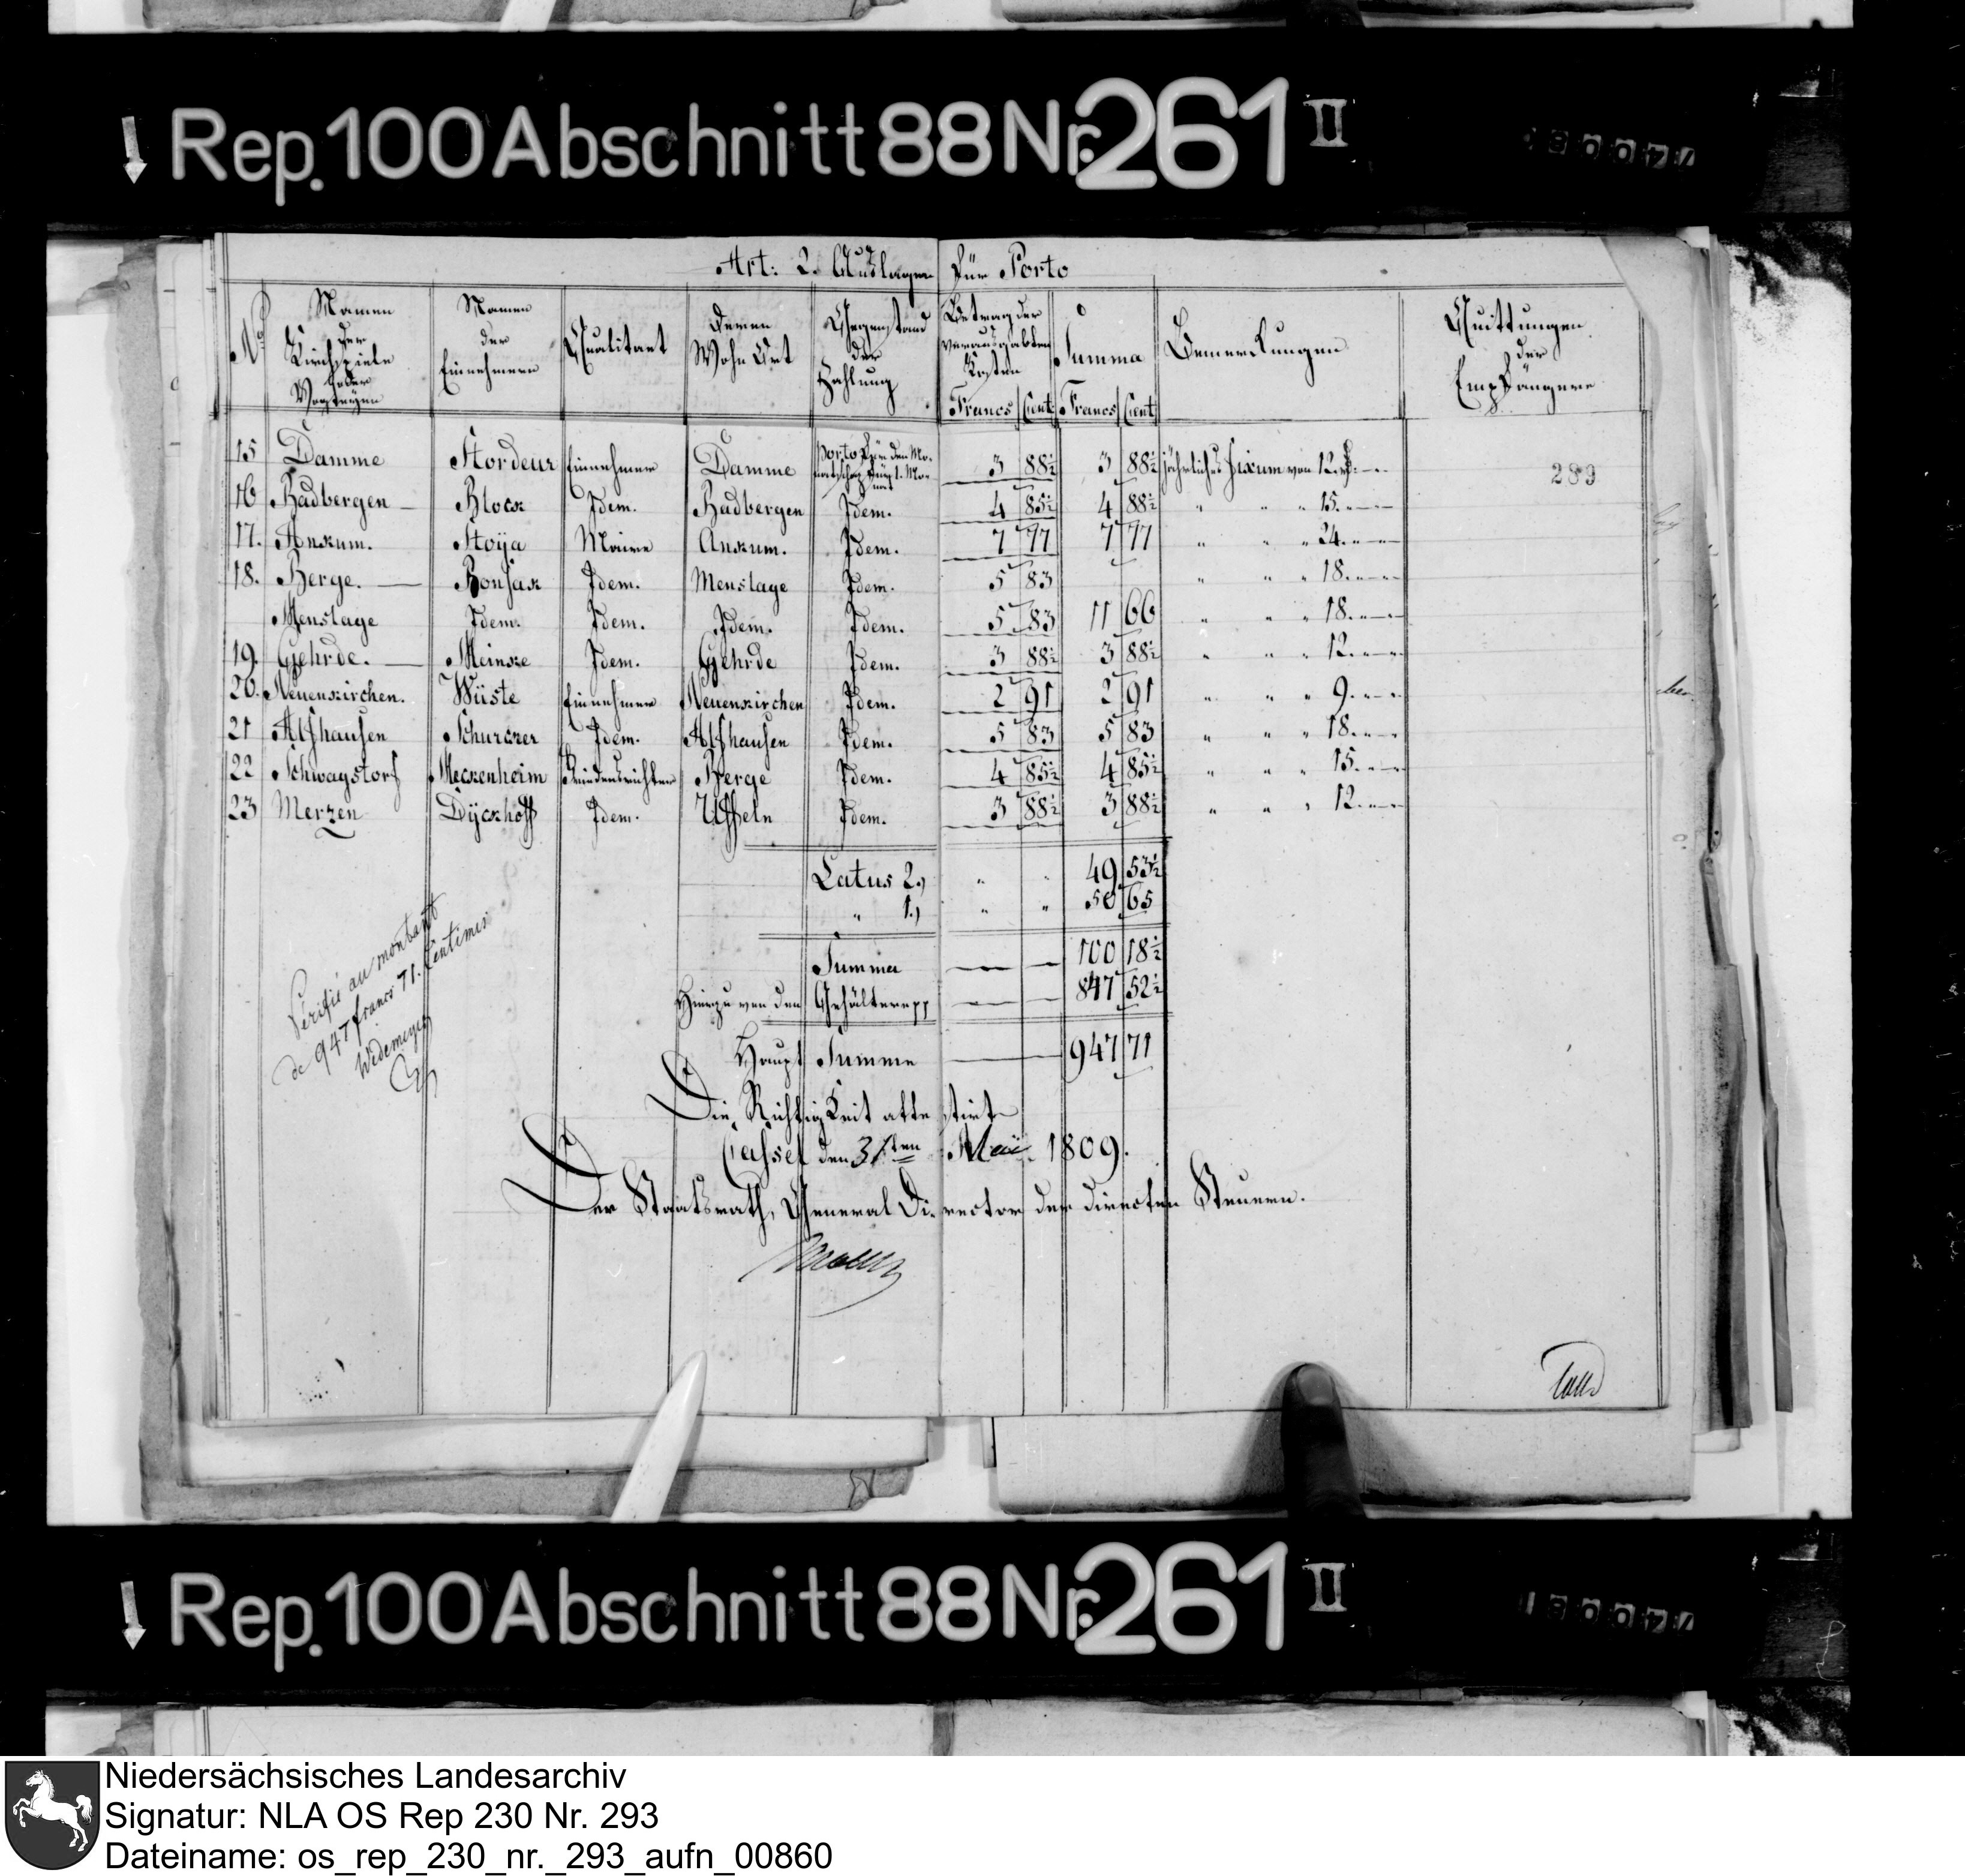 Rep. 100 Abschnitt 88 Nr. 261 II
Art: 2. Auslagen für Porto
No
Namen der Kirchspiele oder Vogteyen
Namen der Einnehmer
Qualitaet
Deren Wohn Ort
Gegenstand der Zahlung
Betrag der verausgabten Kosten
Summa
Bemerkungen
Quittungen der Empfänger
Francs Cent Francs Cent
15 Damme Stordeur Einnehmer Damme Porto für den Monat 3 88½ 3 88½ jährliches Fixum von 12
16 Badbergen Block Idem. Badbergen Idem. 4 85½ 4 88½ " " " 15.
289
17. Ankum. Stoÿa Maire Ankum. Idem. 7 77 7 77 " " " 24.
18. Berge. Bonjak Idem. Menslage Idem. 5 83 " " " 18.
Menslage Idem. Idem. Idem. Idem. 5 83 11 66 " " " 18.
19. Gehrde. Meinke Idem. Gehrde Idem. 3 88½ 3 88½ " " " 12.
20. Neuenkirchen. Wüste Einnehmer Neuenkirchen Idem. 2 91 2 91 " " " 9.
21 Alfhausen Schurcker Idem. Alfhausen Idem. 5 83 5 83 " " " 18.
22 Schwagstorf Meckenheim Friedensrichter Berge Idem. 4 85½ 4 85½ " " " 15.
23 Merzen Dÿckhoff Idem. Uffeln Idem. 3 88½ 3 88½ " " " 12.
Latus 2.) " " 49 53½
" 1.) " " 50 65
Summa 100 18½
Hierzu von den Gehältern pp 847 52½
Haupt Summe 947 71
Vérifié au montant
de 947 francs 71. Centimes
Widemeyer
Die Richtigkeit attestirt
Cassel den 31ten Mai 1809.
Der Staatsrath, General Director der directen Steuern.
Rep. 100 Abschnitt 88 Nr. 261 II
Niedersächsisches Landesarchiv
Signatur: NLA OS Rep 230 Nr. 293
Dateiname: os_rep_230_nr._293_aufn_00860